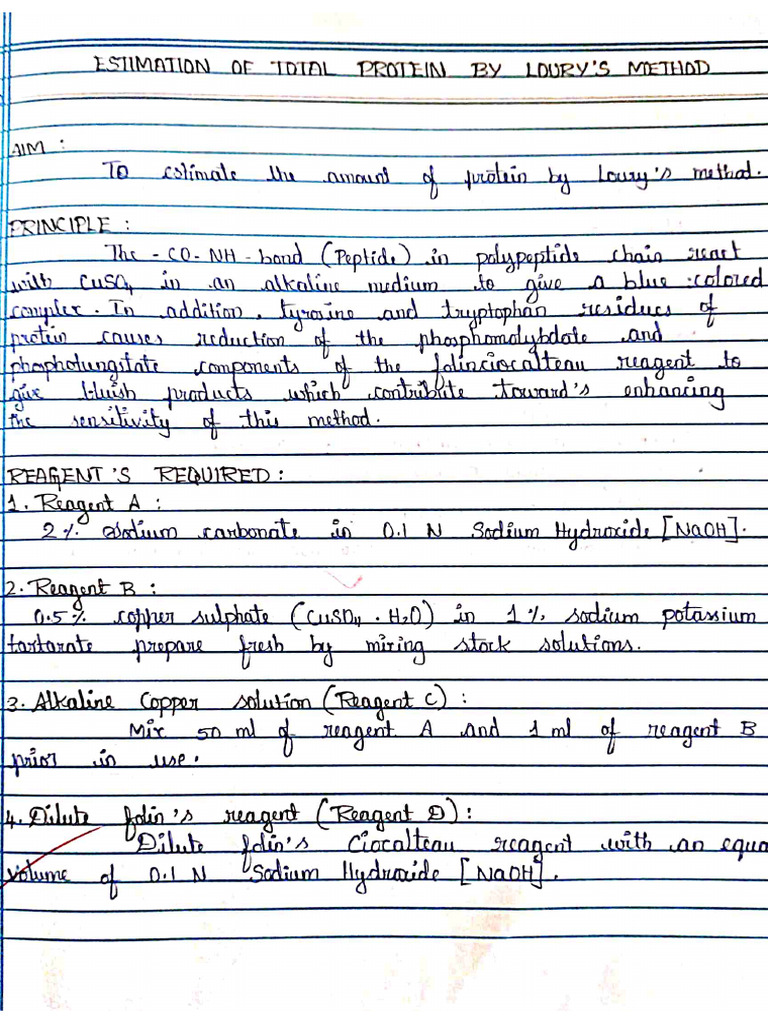 ESTIMATION OF TOTAL PROTEIN BY LOURY'S METHOD
AIM :
To estimate the amount of protein by Loury's method.
PRINCIPLE :
The - CO - NH - bond (Peptide) in polypeptide chain react
with CuSO4 in an alkaline medium to give a blue colored
complex. In addition, tyrosine and tryptophan residues of
protein causes reduction of the phosphomolybdate and
phosphotungstate components of the folinciocalteau reagent to
give bluish products which contribute toward's enhancing
the sensitivity of this method.
REAGENT'S REQUIRED :
1. Reagent A :
2% Sodium carbonate in 0.1 N Sodium Hydroxide [NaOH].
2. Reagent B :
0.5% copper sulphate (CuSO4 . H2O) in 1% sodium potassium
tartarate prepare fresh by mixing stock solutions.
3. Alkaline Copper solution (Reagent C) :
Mix 50 ml of reagent A and 1 ml of reagent B
prior in use.
4. Dilute folin's reagent (Reagent D) :
Dilute folin's Ciocalteau reagent with an equa
volume of 0.1 N Sodium Hydroxide [NaOH].